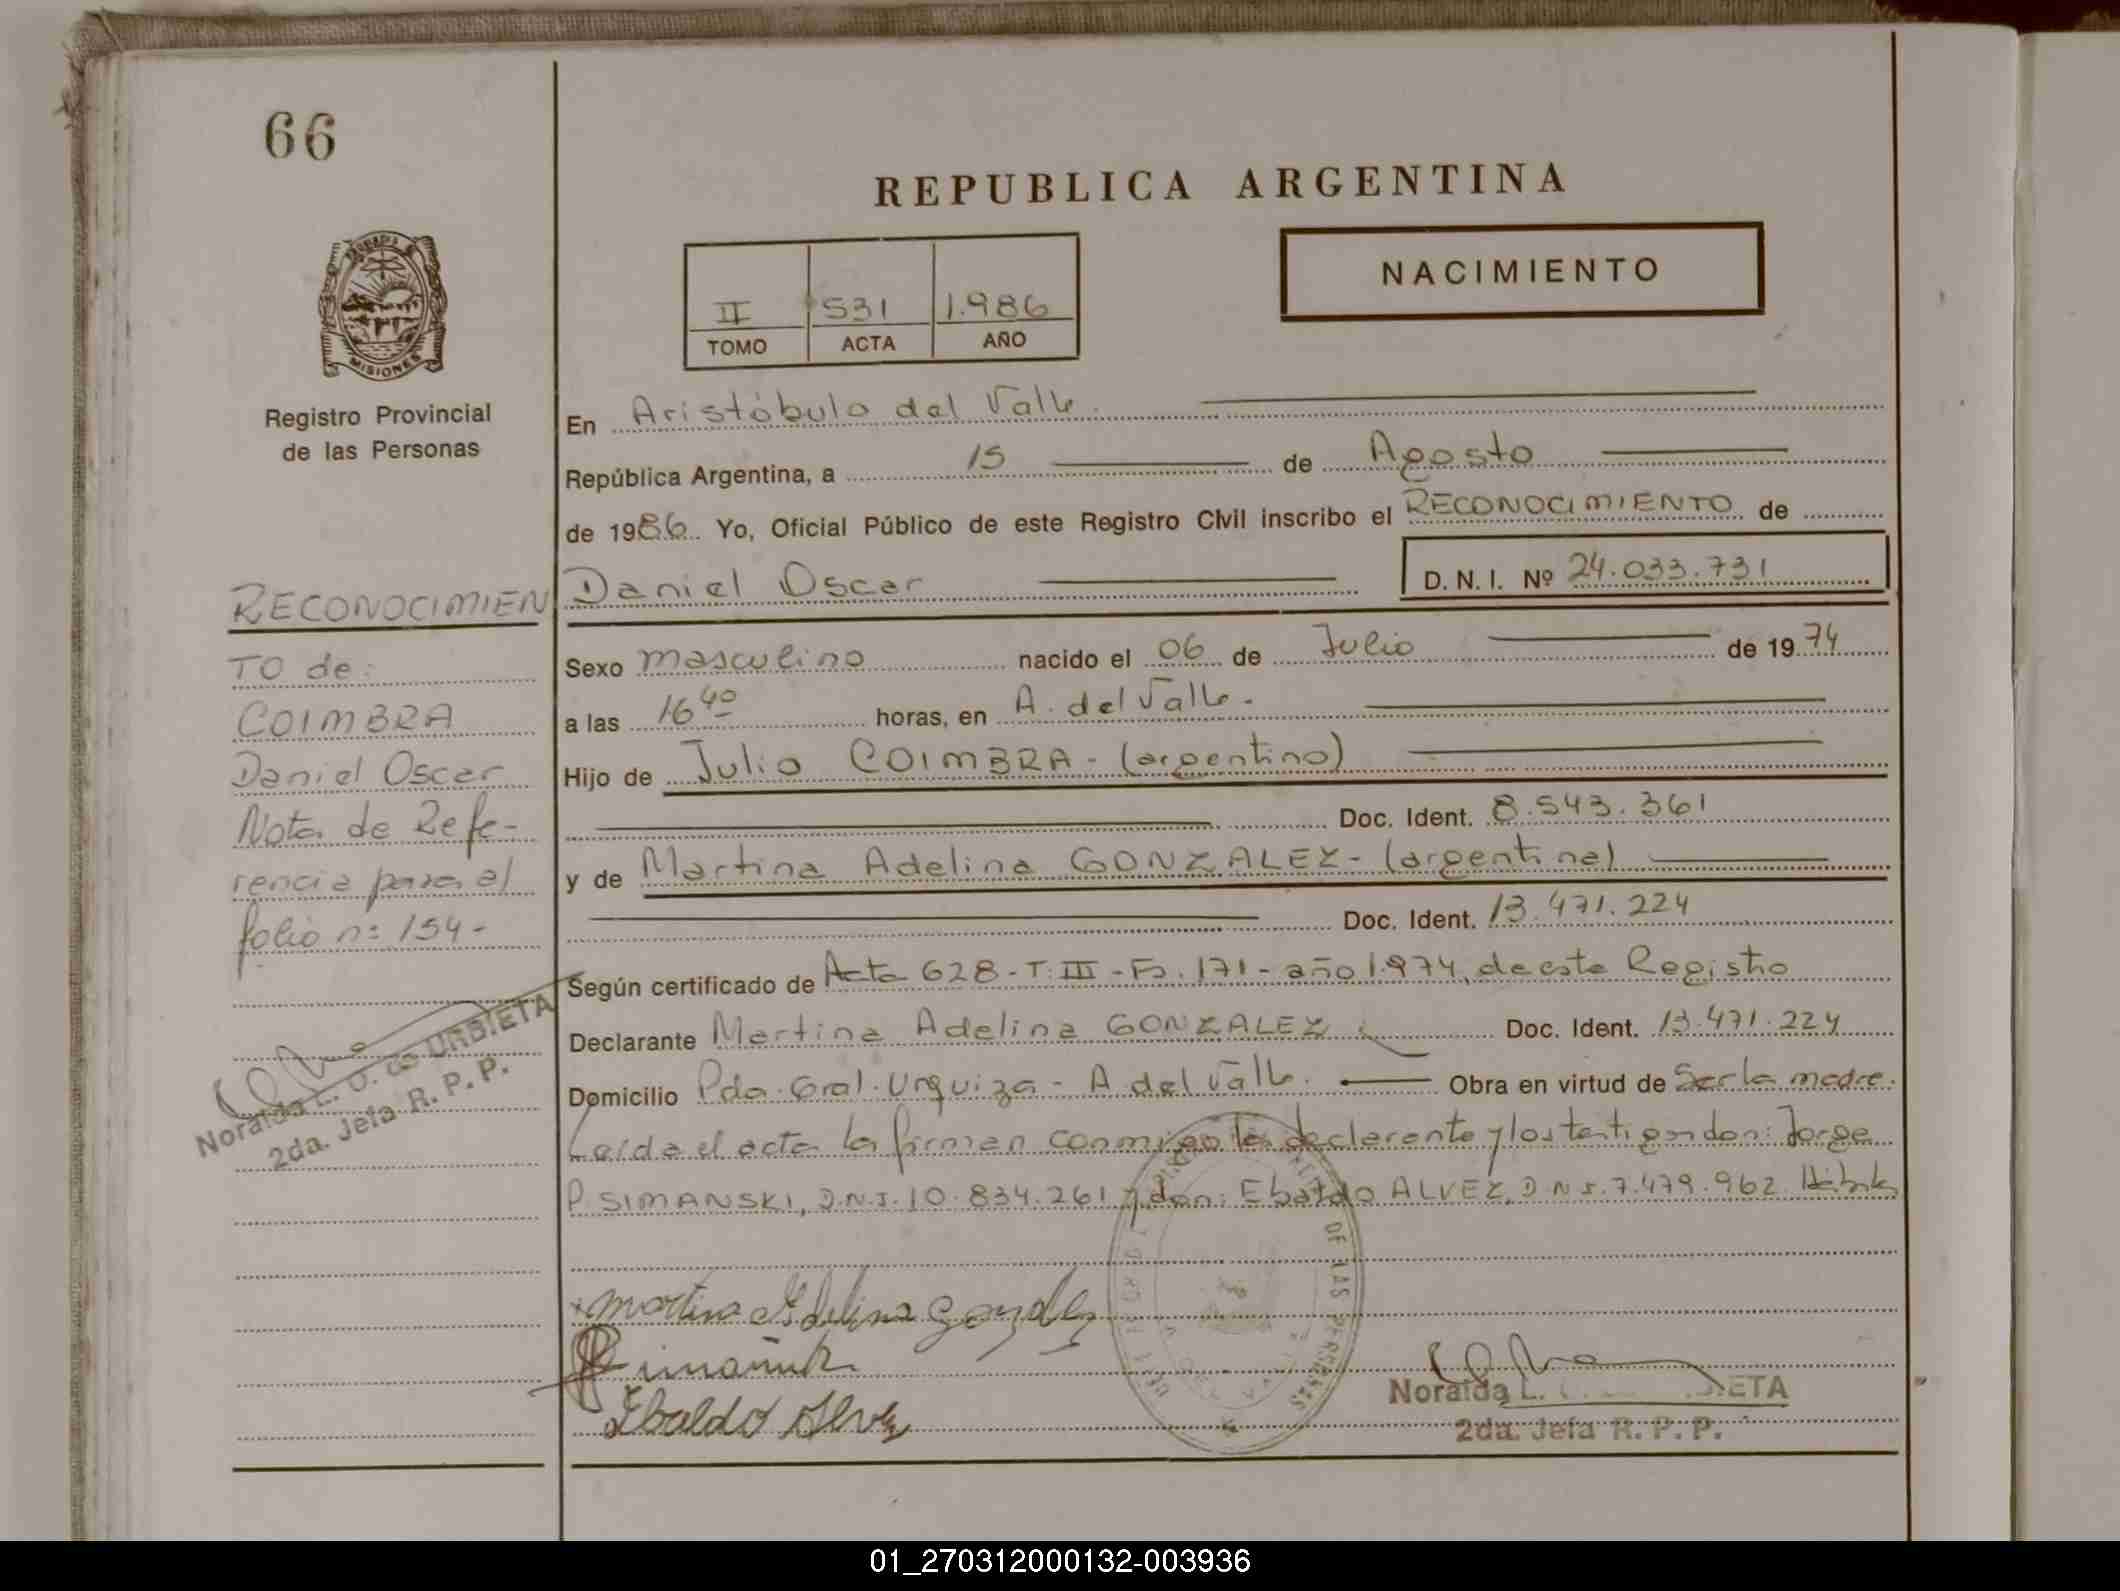 66
REPUBLICA ARGENTINA
NACIMIENTO
II 531 1.986
TOMO ACTA AÑO
MISIONES
Registro Provincial
de las Personas
En Aristóbulo del Valle.
República Argentina, a 15 de Agosto
de 1986. Yo, Oficial Público de este Registro Civil inscribo el RECONOCIMIENTO de
Daniel Oscar D. N. I. Nº 24.033.731
Sexo masculino nacido el 06 de Julio de 1974
a las 16 40 horas, en A. del Valle.
Hijo de Julio COIMBRA - (argentino)
Doc. Ident. 8.543.361
y de Martina Adelina GONZALEZ - (argentina)
Doc. Ident. 13.471.224
Según certificado de Acta 628 - T: III - Fo. 171 - año 1.974, de este Registro
Declarante Martina Adelina GONZALEZ Doc. Ident. 13.471.224
Domicilio Pda. Gral. Urquiza - A. del Valle. Obra en virtud de Ser la madre.
Leída el acta la firman conmigo la declarante y los testigos don: Jorge
P. SIMANSKI, D.N.I. 10.834.261 y don: Ebaldo ALVEZ, D.N.I. 7.479.962. Hábiles
Martina Adelina Gonzalez
Ebaldo Alvez
Noraida L. ETA
2da. Jefa R. P. P.
RECONOCIMIEN
TO de:
COIMBRA
Daniel Oscar
Nota de Refe-
rencia para el
folio nº 154-
Noraida L. O. de URBIETA
2da. Jefa R. P. P.
DE LAS PERSONAS
01_270312000132-003936